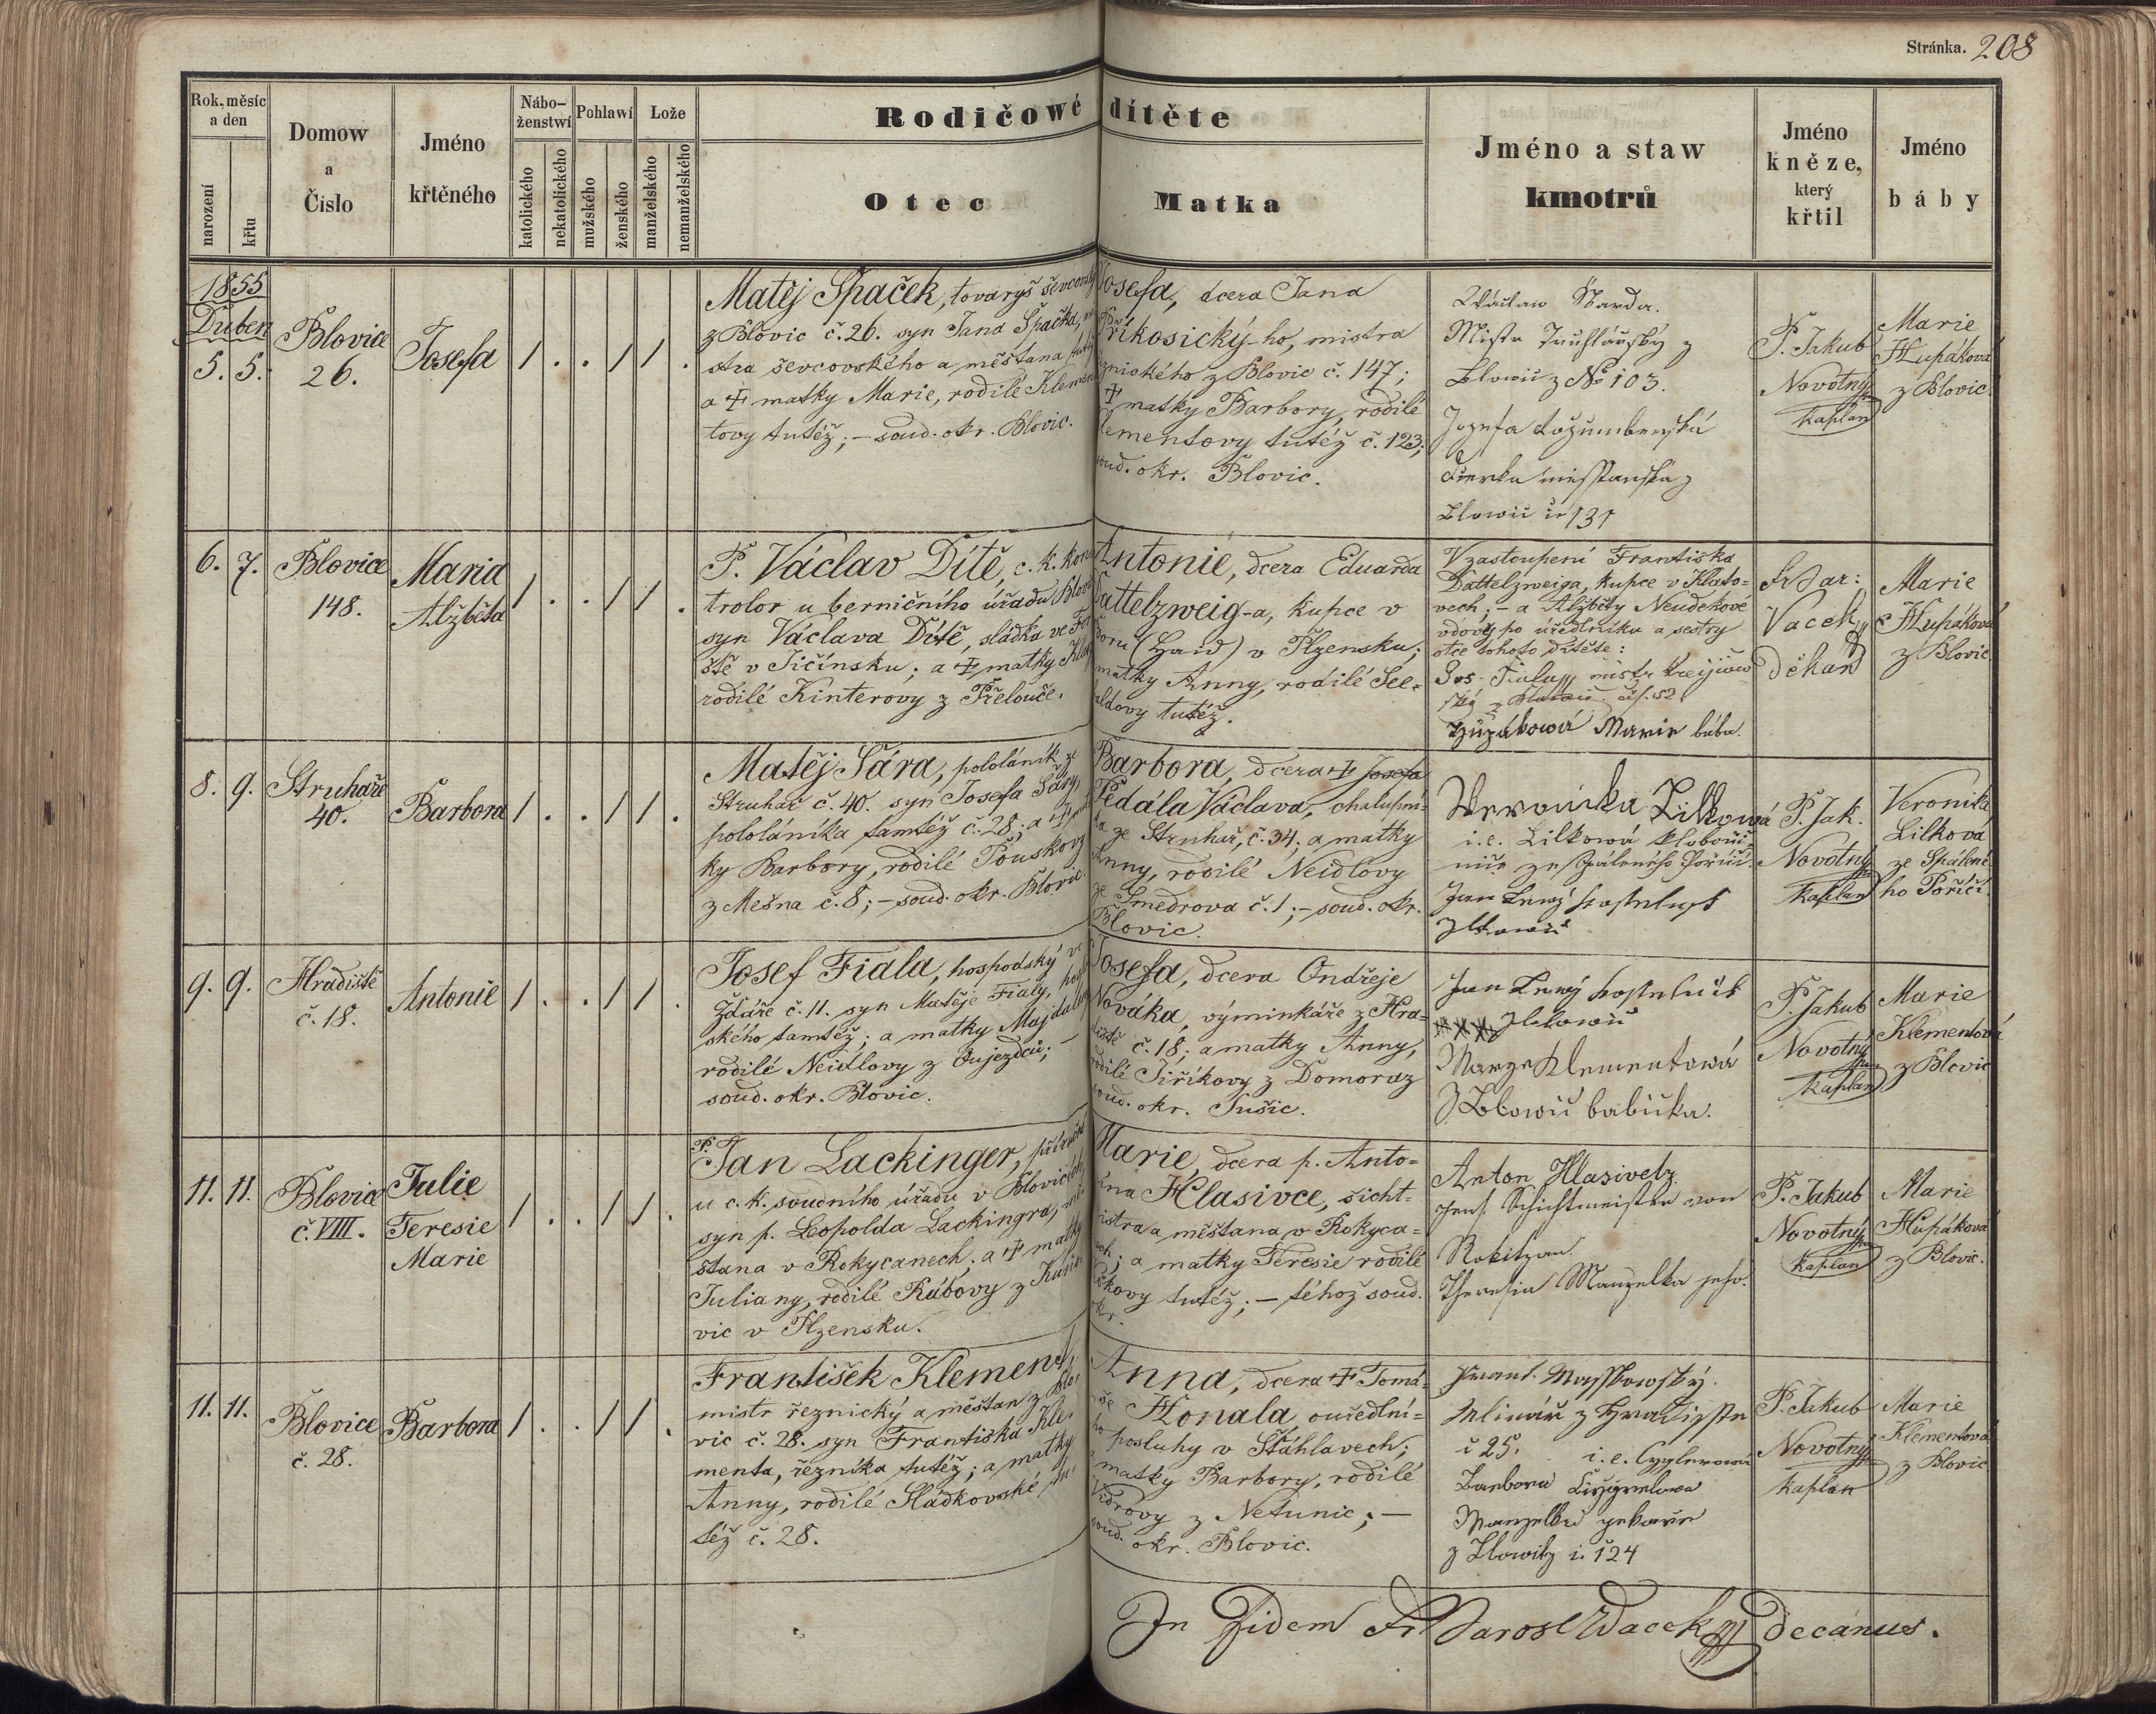 Stránka. 208
Rok, měsíc a den
narození
křtu
Domow a Číslo
Jméno křtěného
Nábo-ženstwí
katolického
nekatolického
Pohlawí
mužského
ženského
Lože
manželského
nemanželského
Rodičowé dítěte
Otec
Matka
Jméno a staw kmotrů
Jméno kněze, který křtil
Jméno báby
1855
Duben
5. 5.
Blovice
26.
Josefa
1 . . 1 1 .
Matěj Špaček, tovaryš ševcovský
z Blovic č. 26. syn Jana Špačka, mi
stra ševcovského a měštana tutéž
a † matky Marie, rodilé Klemen
tovy tutéž; – soud. okr. Blovic.
Josefa, dcera Jana
Příkosický-ho, mistra
znického z Blovic č. 147;
† matky Barbory, rodilé
lementovy tutéž č. 123;
soud. okr. Blovic.
Wáclaw Škarda.
Mistr Truhlářský z
Blowic z No 103.
Jozefa
Dcerka měsťanská z
Blowic č 131
P. Jakub
Novotný
kaplan
Marie
Hupáková
z Blovic.
6. 7.
Blovice
148.
Maria
Alžběta
1 . . 1 1 .
P. Václav Dítě, c. k. kon
trolor u berničního úřadu Blovic
syn Václava Dítě, sládka ve
ště v Jičínsku; a † matky
rodilé Kinterovy z Přelouče.
Antonie, dcera Eduarda
Dattelzweig-a, kupce v
Boru (Haid) v Plzensku;
matky Anny, rodilé See-
aldovy tutéž.
V zastoupení Františka
Dattelzweiga, kupce v Klato-
vech; – a Alžběty Neudekové
vdovy po úředlníku a sestry
otce tohoto dítěte:
Jos. Fiala mistr krejčow
ský z Blowic čís. 52
Hupákowá Marie bába.
Fr Jar:
Vacek
děkan
Marie
Hupáková
z Blovic.
8. 9.
Struhaře
40.
Barbora
1 . . 1 1 .
Matěj Šára, pololáník ze
Struhař č. 40. syn Josefa Šáry,
pololáníka tamtéž č. 28; a † mat
ky Barbory, rodilé Pouskovy
z Mešna č. 8; – soud. okr. Blovic.
Barbora, dcera † Josefa
Pedála Václava, chalupní-
ka ze Struhař, č. 34; a matky
Anny, rodilé Neidlovy
ze Smedrova č. 1; – soud. okr.
Blovic.
Weronika Lilkowá
i. e. Lilkowá klobouč-
nice ze Spáleného Poříčí.
Jan Černý kostelník
z Blowic
P. Jak.
Novotný
kaplan
Veronika
Lilková
ze Spálené
ho Poříčí.
9. 9.
Hradiště
č. 18.
Antonie
1 . . 1 1 .
Josef Fiala, hospodský ve
Ždáře č. 11. syn Matěje Fialy, hospod
ského tamtéž; a matky Majdaleny
rodilé Neidlovy z Oujezdců; –
soud. okr. Blovic.
Josefa, dcera Ondřeje
Nováka, výminkáře z Hra-
diště č. 18; a matky Anny,
rodilé Jiříkovy z Domoraz
soud. okr. Sušic.
Jan Černý kostelník
z Blowic
Marye Klementowá
z Blowic babicka.
P. Jakub
Novotný
kaplan
Marie
Klementová
z Blovic
11. 11.
Blovice
č. VIII.
Julie
Teresie
Marie
1 . . 1 1 .
P. Jan Lackinger, příručí
u c. k. soudního úřadu v Blovicích,
syn p. Leopolda Lackingra, mě
štana v Rokycanech; a † matky
Juliany, rodilé Rábovy z
vic v Plzensku.
Marie, dcera p. Anto-
nína Hlasivce, šicht-
mistra a měštana v Rokyca-
nech; a matky Teresie rodilé
tutéž; – téhož soud.
okr.
Anton Hlasivetz
Schichtmeister von
Rokitzan.
Theresia Manzelka jeho.
P. Jakub
Novotný
kaplan
Marie
Hupáková
z Blovic.
11. 11.
Blovice
č. 28.
Barbora
1 . . 1 1 .
František Klement
mistr řeznický a měštan z Blo
vic č. 28. syn Františka Kle-
menta, řezníka tutéž; a matky
Anny, rodilé Sládkovské tu-
též č. 28.
Anna, dcera † Tomá-
še Honala ouředlní-
ho posluhy v Šťáhlavech;
a matky Barbory, rodilé
Vidrovy z Netunic; –
soud. okr. Blovic.
Frant. Maštowský.
Mlinář z Hradišstě
č 25. i. e. Cyglerowá
Barbora
Manzelka pekaře
z Blowitz č. 124
P. Jakub
Novotný
kaplan
Marie
Klementová
z Blovic
In Fidem Fr Jarosl Wacek decanus.